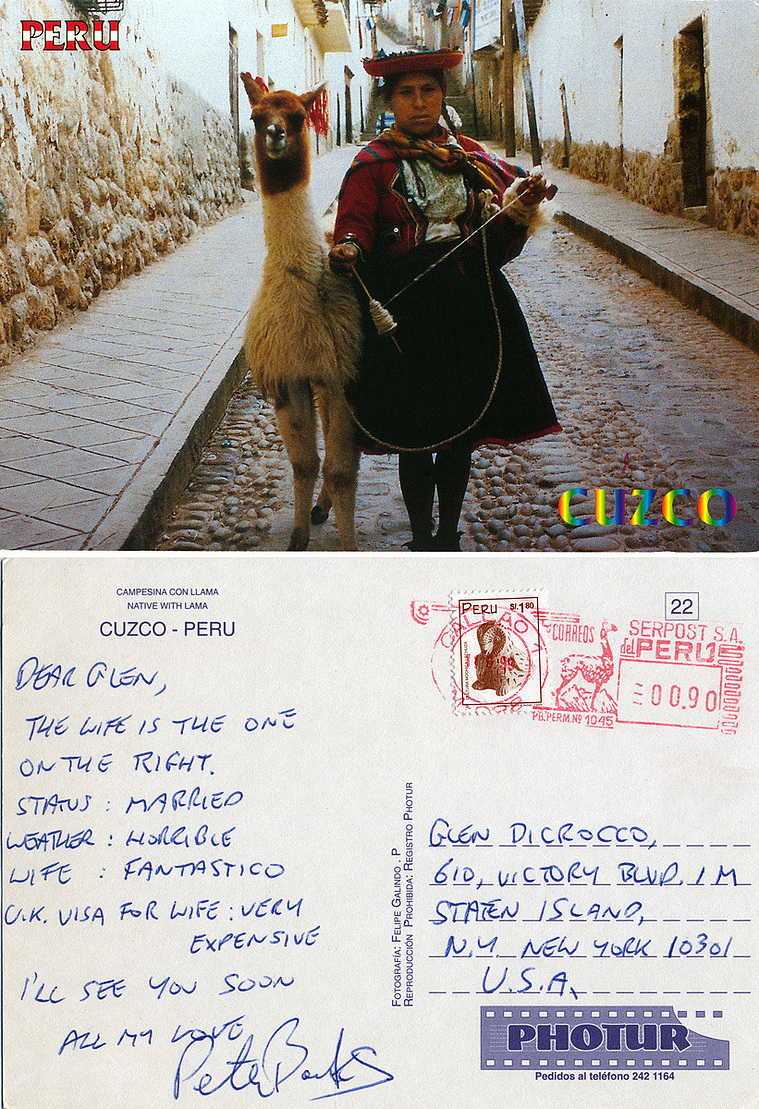 PERU
CUZCO
CAMPESINA CON LLAMA
NATIVE WITH LAMA
CUZCO - PERU
DEAR GLEN,
THE WIFE IS THE ONE
ON THE RIGHT.
STATUS : MARRIED
WEATHER : HORRIBLE
WIFE : FANTASTICO
U.K. VISA FOR WIFE : VERY
EXPENSIVE
I'LL SEE YOU SOON
ALL MY LOVE
Peter
PERU S/.1.80
CALLAO 1
CORREOS
PB.PERM.Nº 1045
22
SERPOST S.A.
del PERU
00.90
FOTOGRAFÍA: FELIPE GALINDO . P
REPRODUCCIÓN PROHIBIDA: REGISTRO PHOTUR
GLEN DICROCCO,
610, VICTORY BLVD. 1M
STATEN ISLAND,
N.Y. NEW YORK 10301
U.S.A.
PHOTUR
Pedidos al teléfono 242 1164